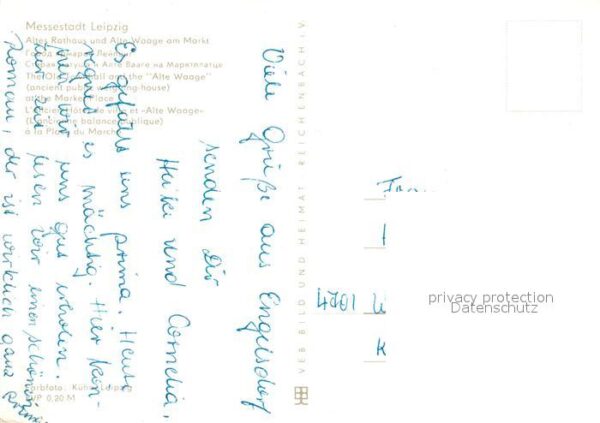 Messestadt Leipzig
Altes Rathaus und Alte Waage am Markt
Город ярмарок Лейпциг
Старая ратуша и Алте Вааге на Марктплатце
The Old Town Hall and the "Alte Waage"
(ancient public weighing-house)
at the Market Place
L'ancien Hôtel de ville et «Alte Waage»
(L'ancienne balance publique)
à la Place du Marché
Viele Grüße aus Engelsdorf
senden Dir
Heike und Cornelia.
Es gefällt uns prima. Heute
regnet es mächtig. Hier kön-
nen wir uns gut erholen.
lesen wir einen schönen
Roman, der ist wirklich ganz prima
VEB BILD UND HEIMAT REICHENBACH i. V.
4701
K
privacy protection
Datenschutz
Farbfoto: Kühn, Leipzig
EVP 0,20 M